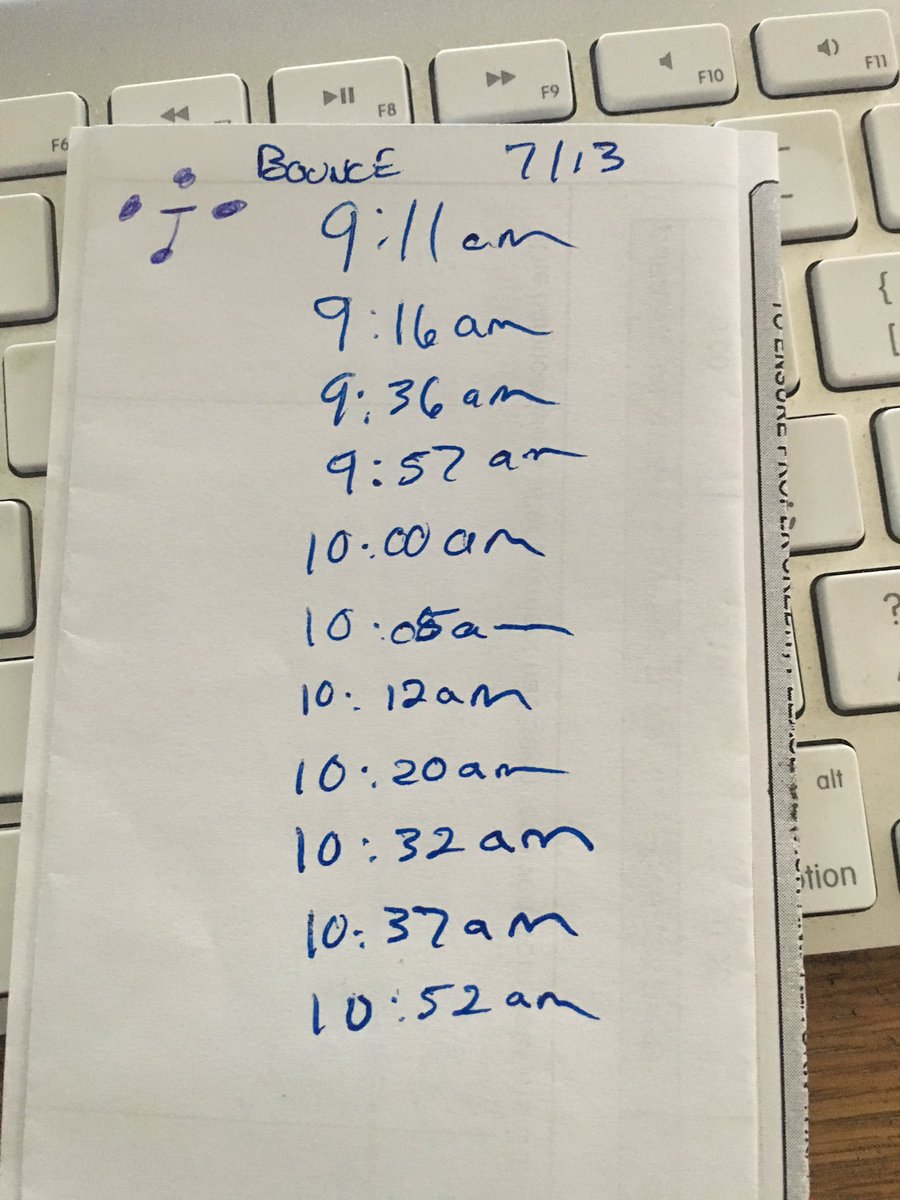 F6
F7
F8
F9
F10
F11
BOUNCE 7/13
9:11 am
9:16 am
9:36 am
9:57 am
10:00 am
10:05 a
10:12 am
10:20 am
10:32 am
10:37 am
10:52 am
{
[
?
alt
option
TO ENSURE